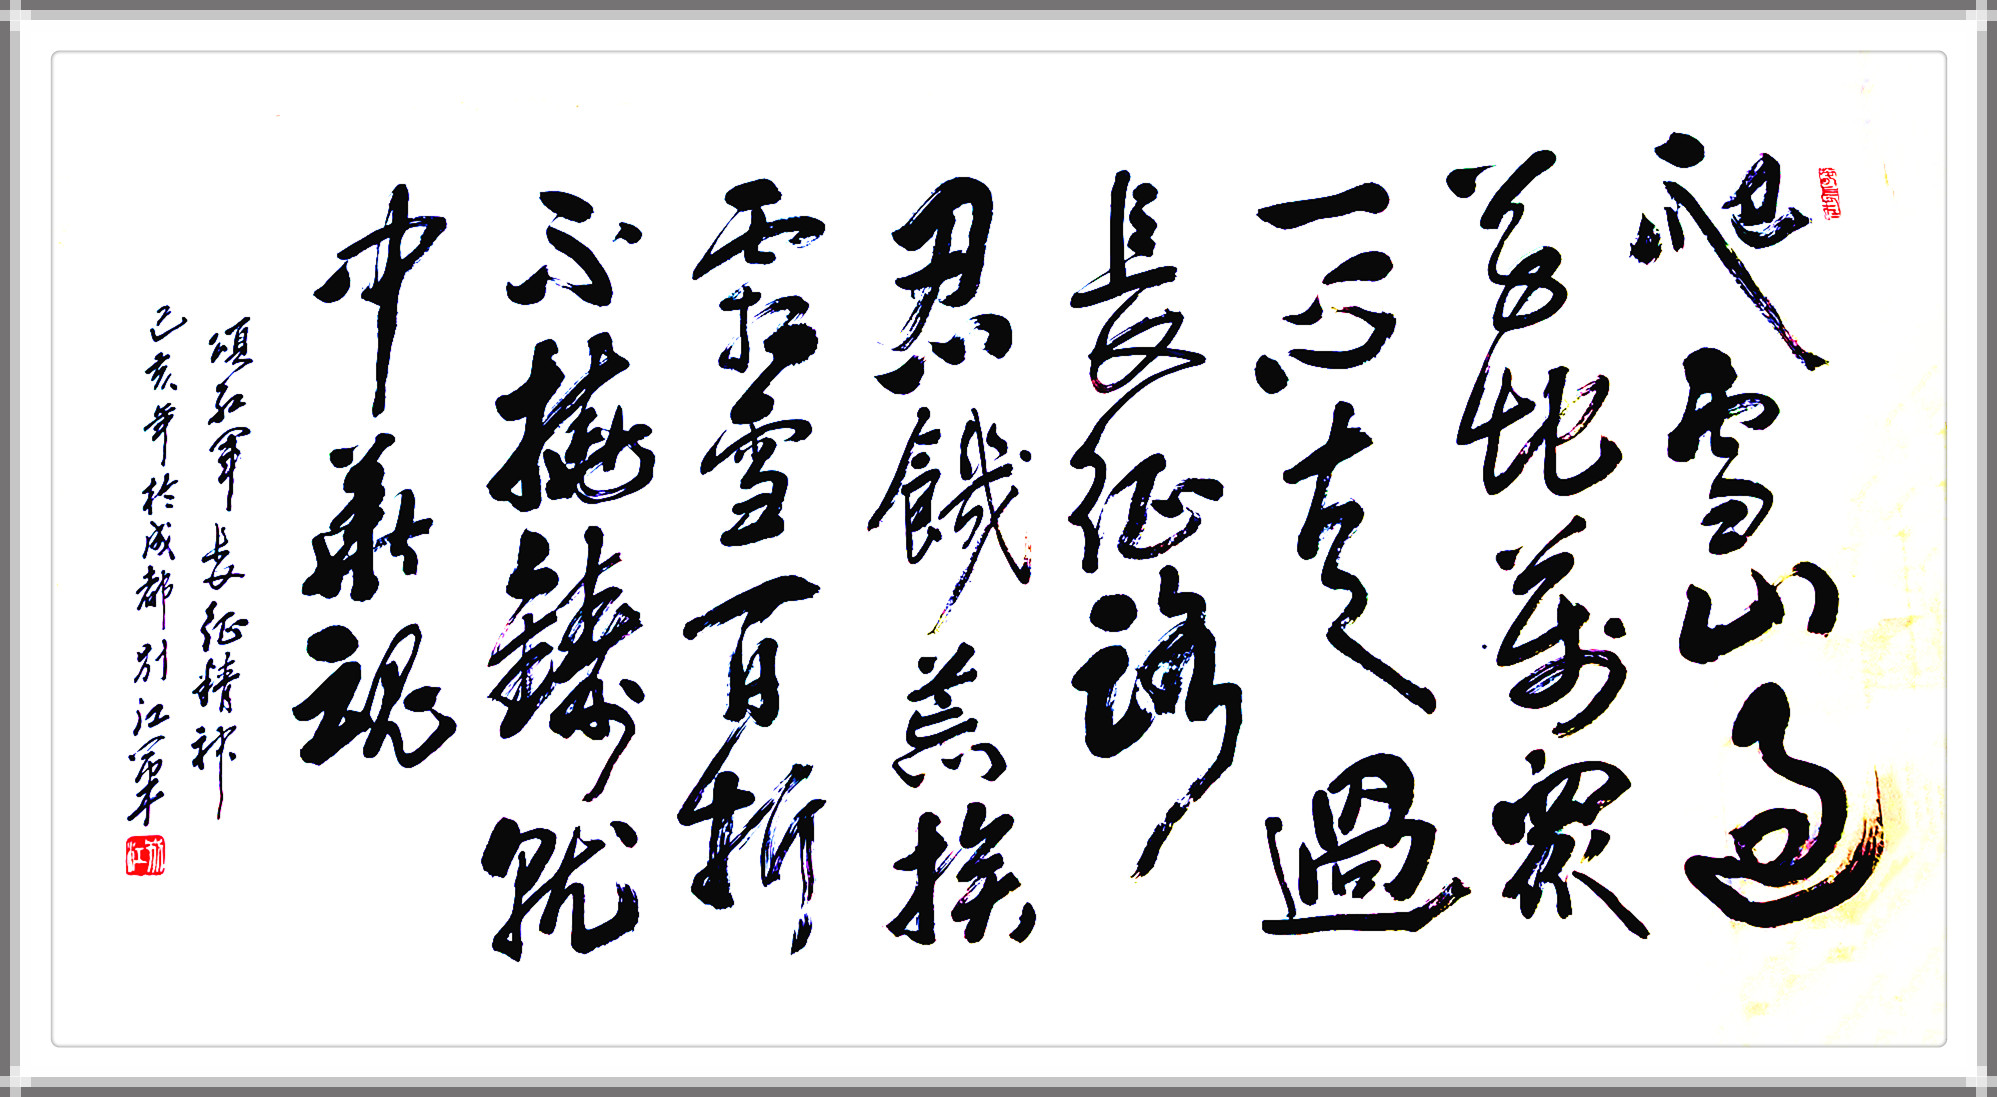 爬雪山過
草地萬眾
一心走過
長征路
忍饑荒挨
霜雪百折
不撓鑄就
中華魂
頌紅軍長征精神
己亥年於成都別江